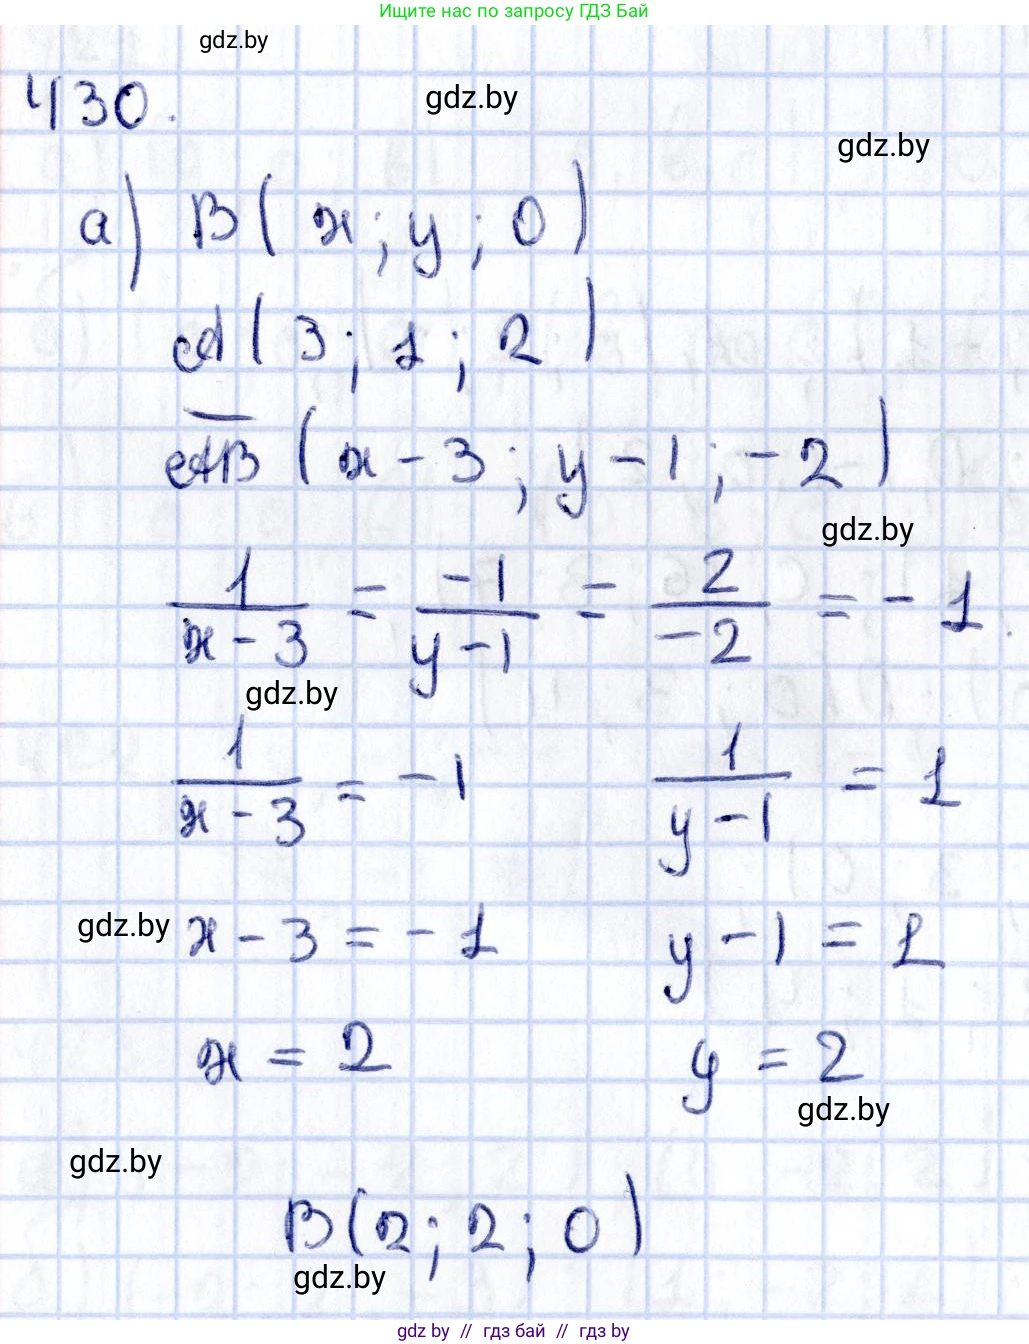 Ищите нас по запросу ГДЗ Бай
gdz.by
430.
gdz.by
gdz.by
а) B(x; y; 0)
A(3; 1; 2)
A̅B̅(x-3; y-1; -2)
gdz.by
1/(x-3) = -1/(y-1) = 2/-2 = -1.
gdz.by
1/(x-3) = -1 1/(y-1) = 1
gdz.by x-3 = -1 y-1 = 1
x = 2 y = 2
gdz.by
gdz.by
B(2; 2; 0)
gdz.by
gdz.by // гдз бай // gdz.by